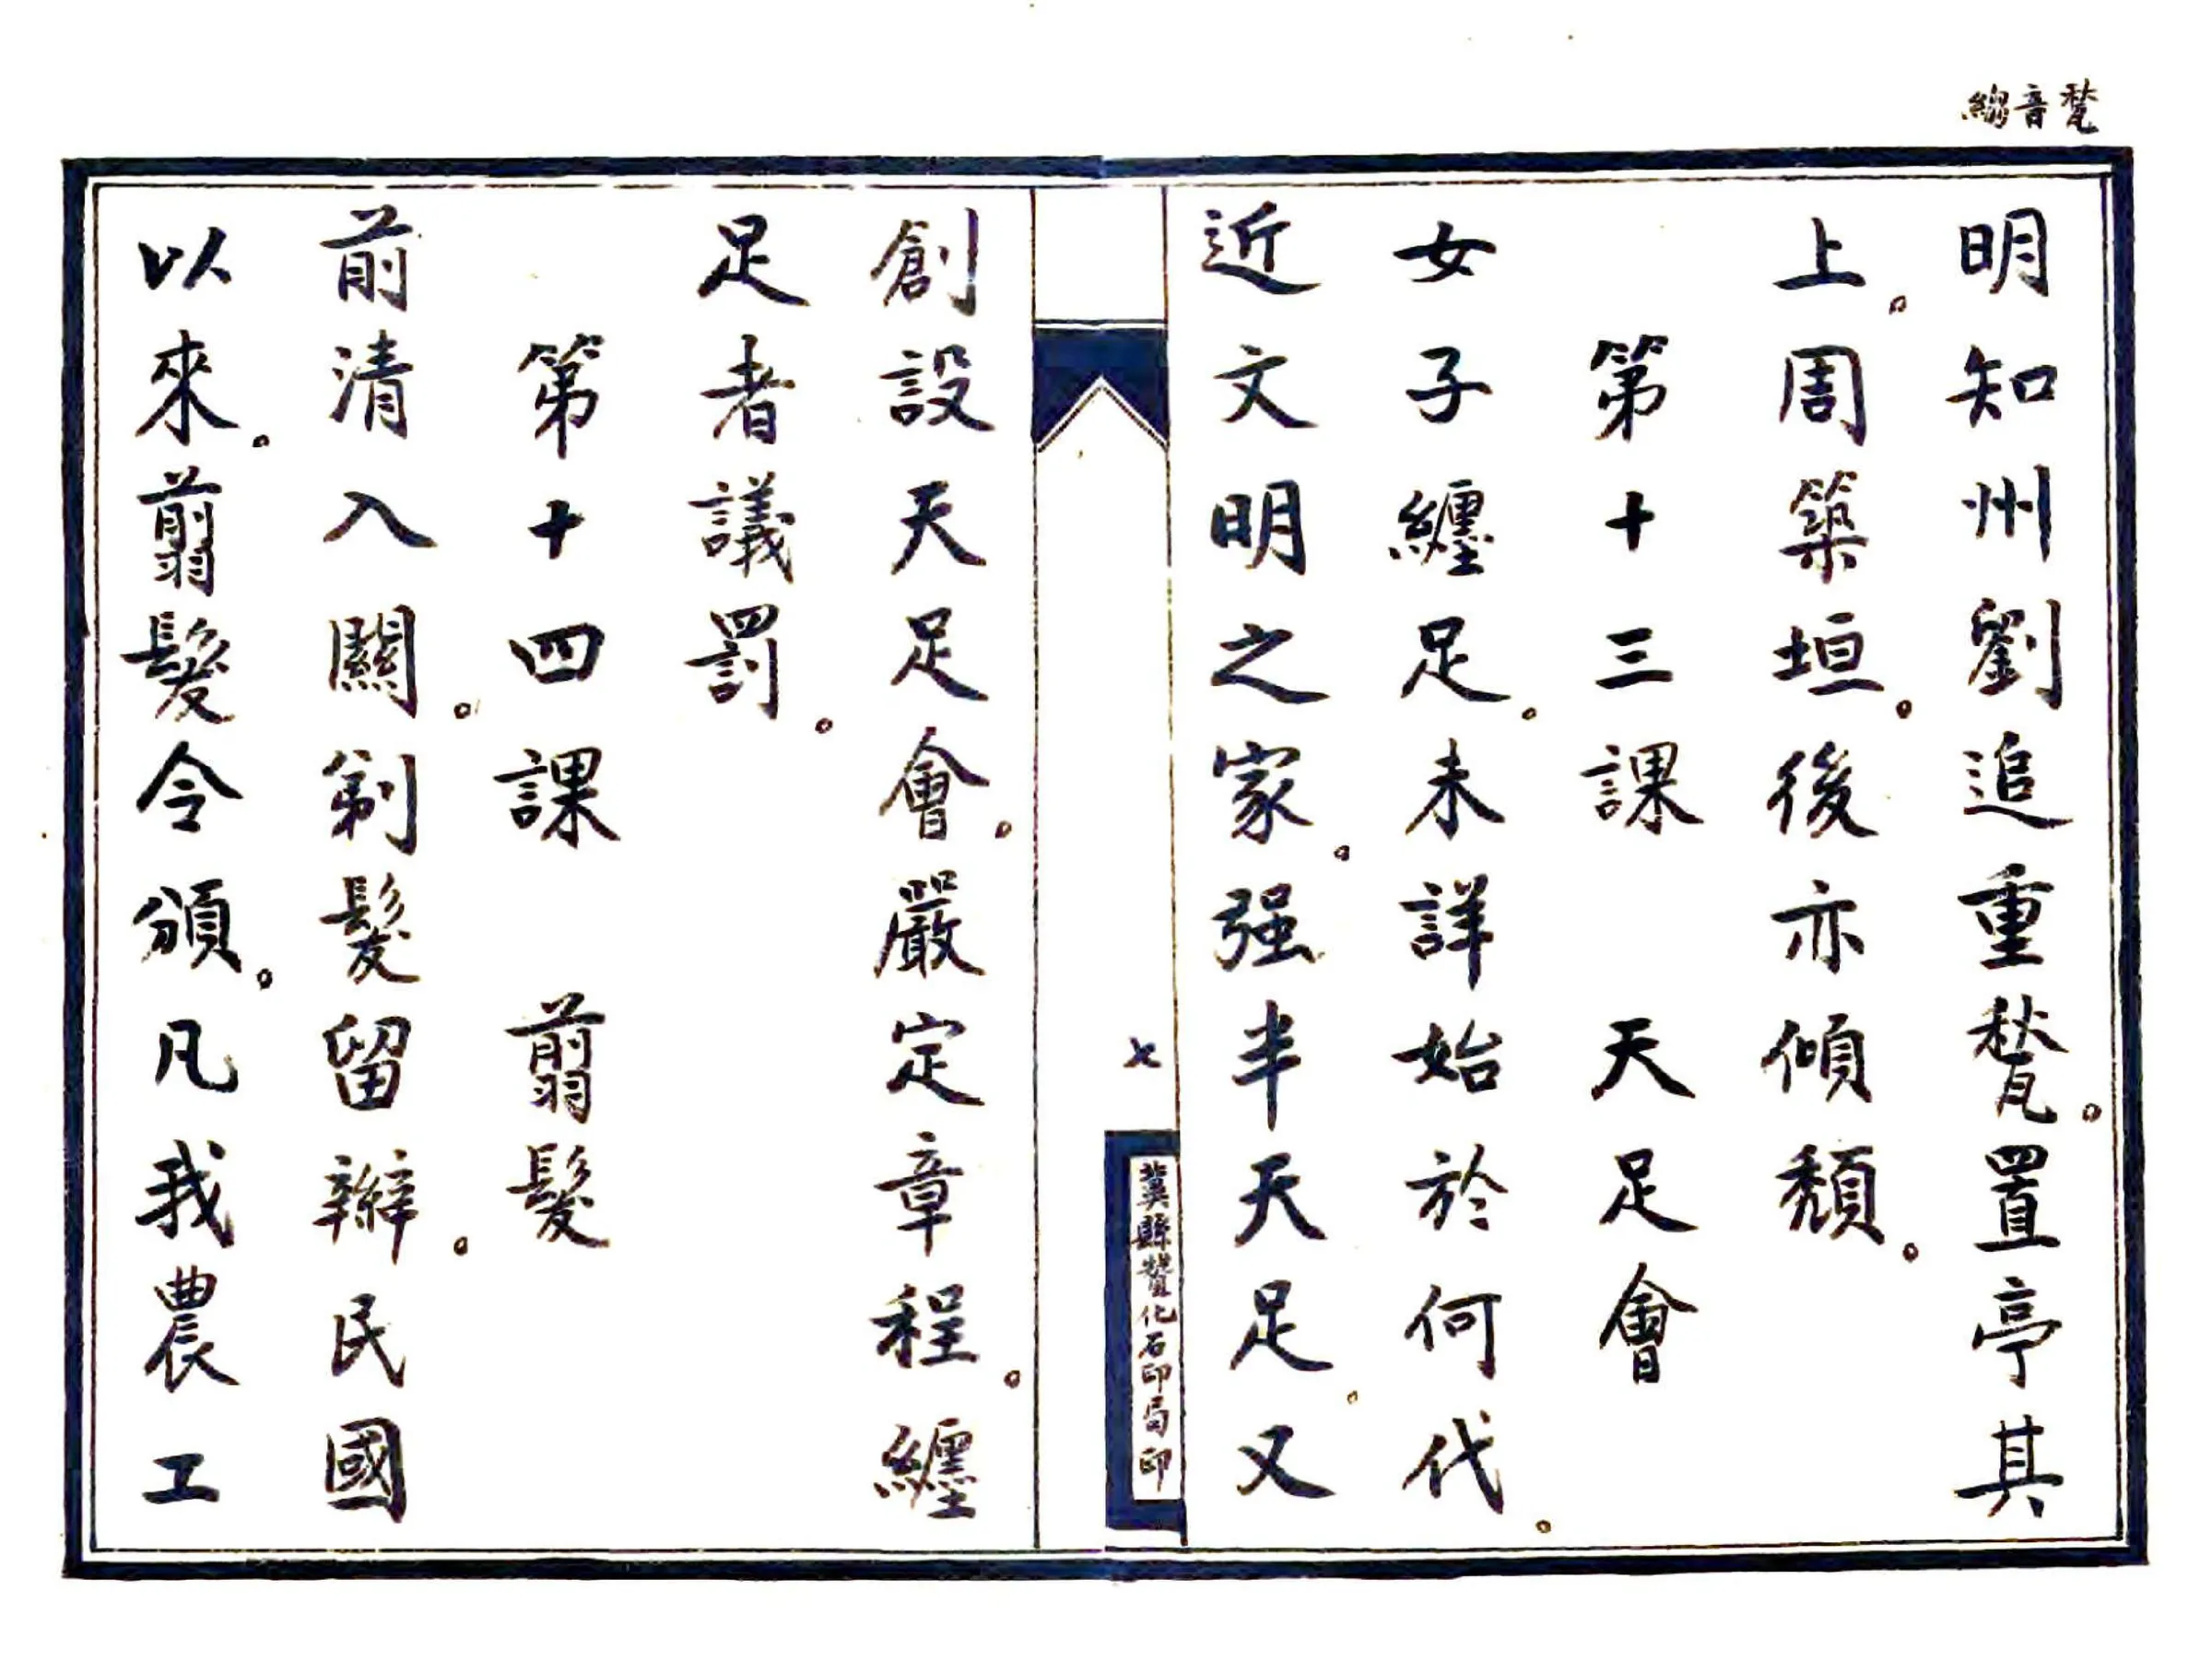 甃音縐
明知州劉追重甃。置亭其
上。周築垣。後亦傾頽。
第十三課　天足會
女子纏足。未詳始於何代。
近文明之家。强半天足。又
七
冀縣贊化石印局印
創設天足會。嚴定章程。纏
足者議罰。
第十四課　翦髮
前清入關。剃髮留辮。民國
以來。翦髮令頒。凡我農工